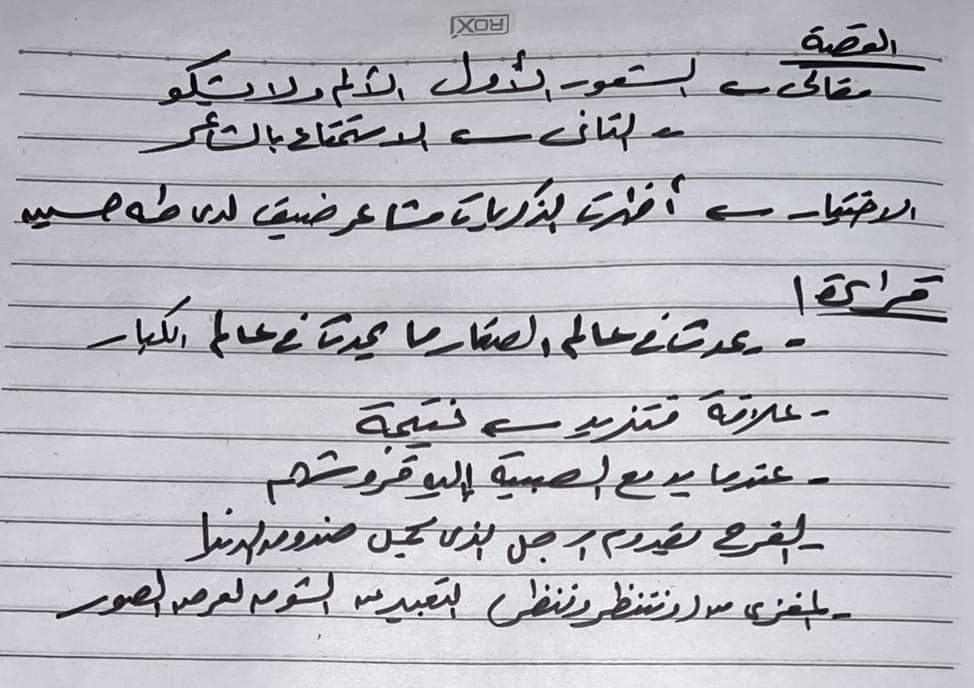 ROXI
القصة
مقالى ← الشعور الأول الألم ولا يشكو
- الثانى ← الاستمتاع بالشاعر
الاختيار ← أظهرت الذكريات مشاعر ضيق لدى طه حسين
قراءة ١
- يحدث فى عالم الصغار ما يحدث فى عالم الكبار
- علاقة فتزيد ← نتيجة
- عندما يدفع الصبية إليه قروشهم
- الفرح بقدوم الرجل الذى يحمل صندوق الدنيا
- المغزى من (وننتظر وننتظر) التعبير عن الشوق لعرض الصور